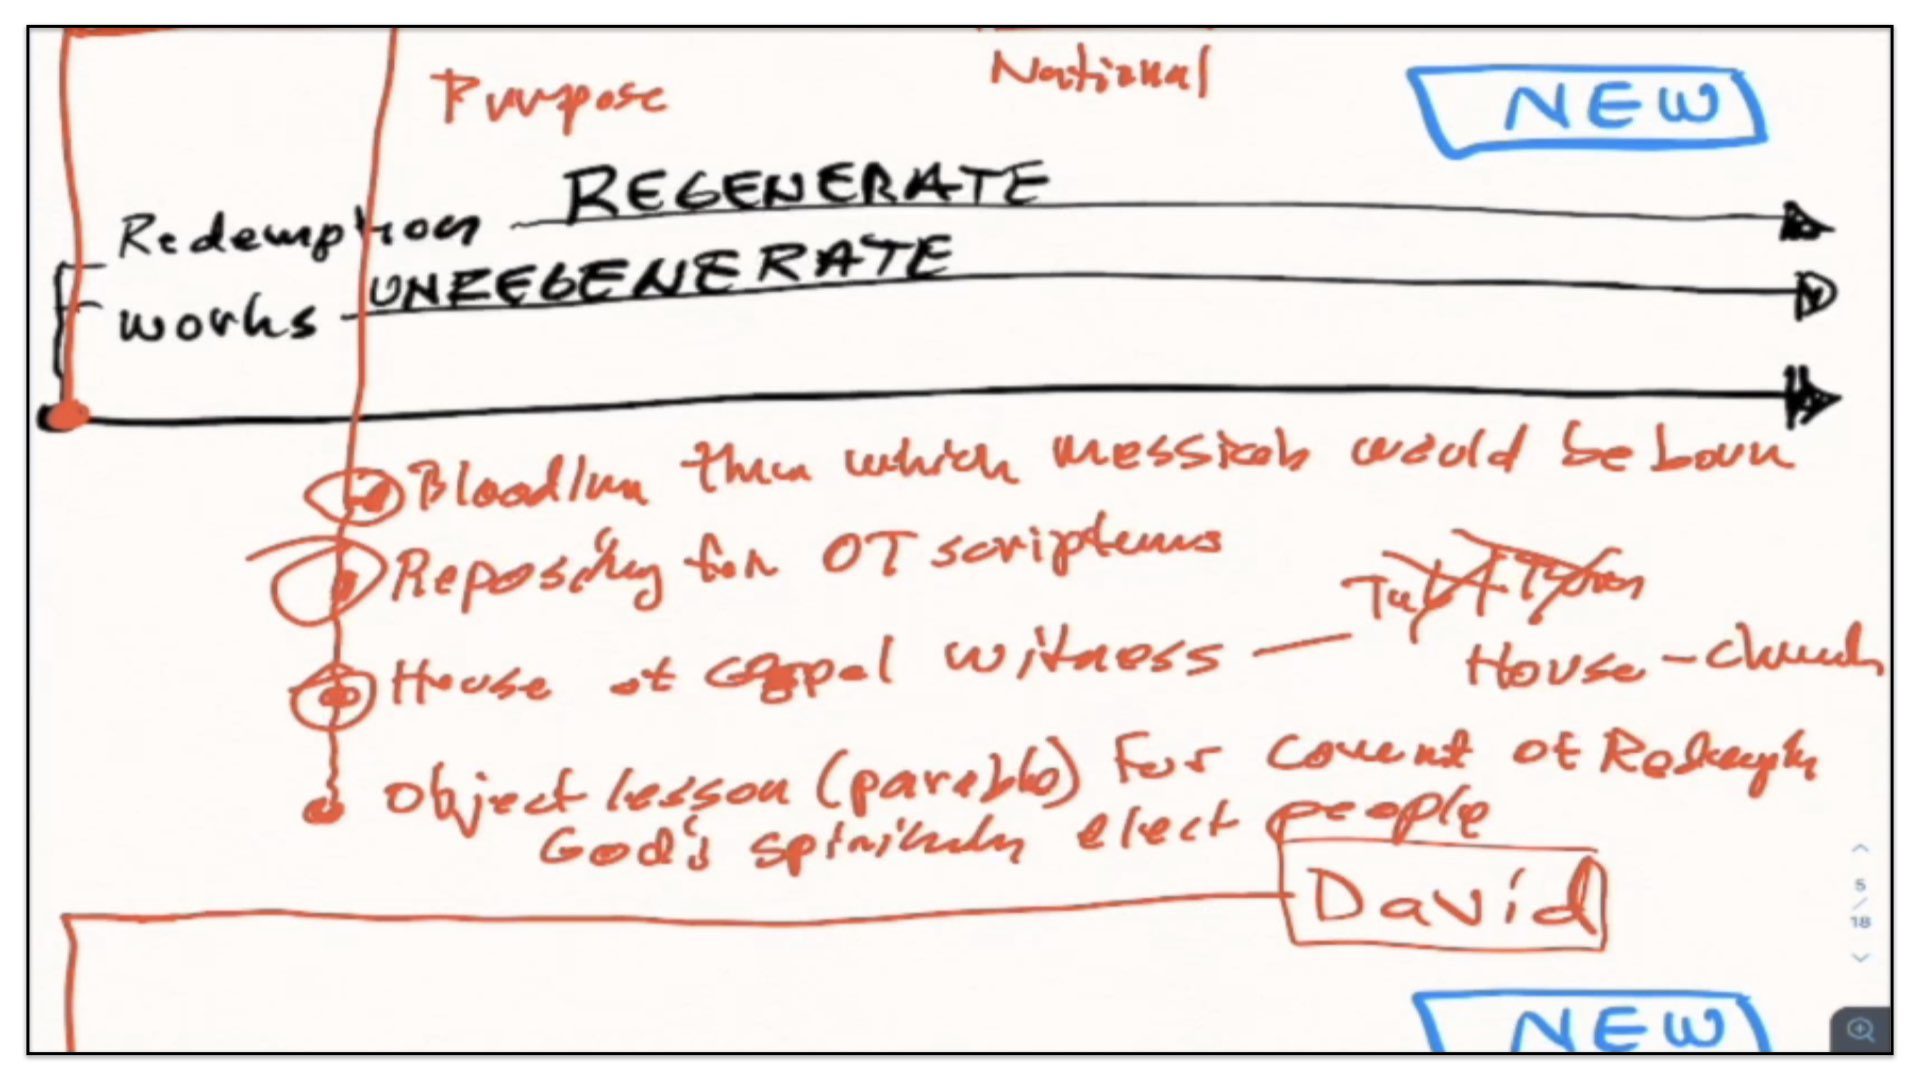 Purpose
National
NEW
REGENERATE
Redemption
UNREGENERATE
works
Bloodline thru which messiah would be born
Repository for OT scriptures
House of Gospel witness —
House - church
Object lesson (parable) For Covenant of Redemption
God's spiritually elect people
David
5
/
18
NEW